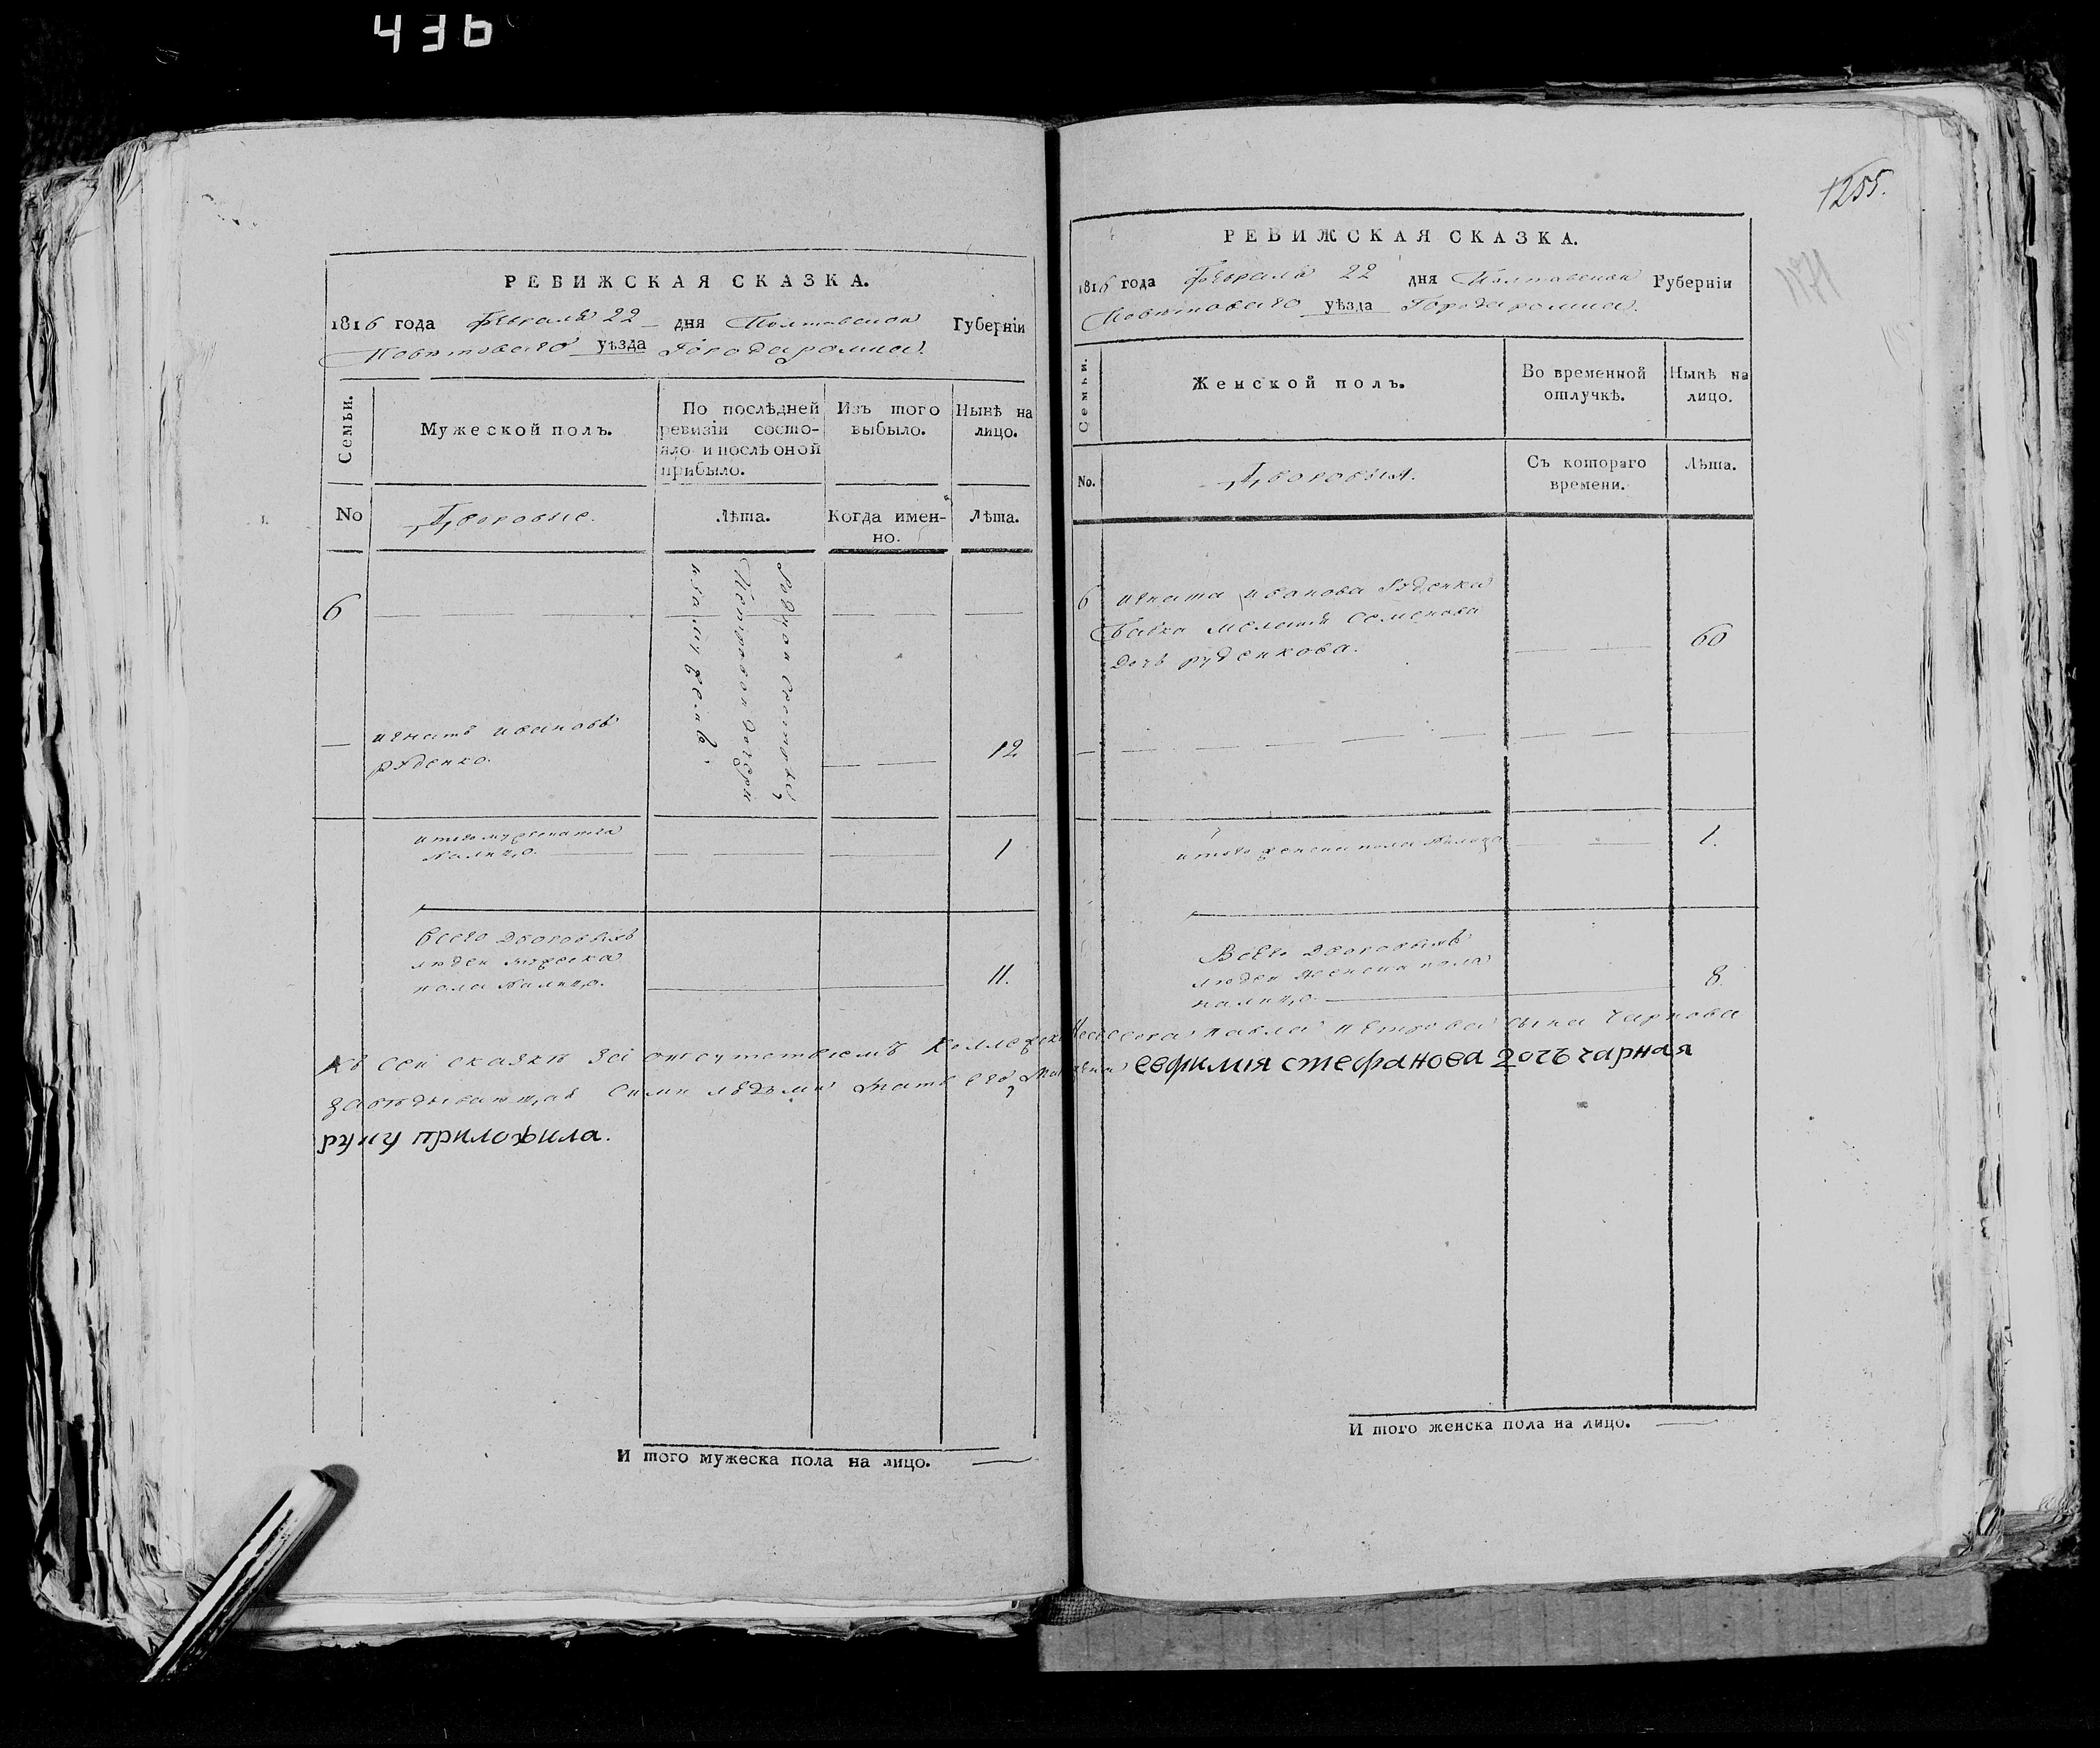 436
РЕВИЖСКАЯ СКАЗКА.
1816 года Февраля 22 дня Полтавской Губернїи
Повѣтоваго уѣзда Города ромна.
Семьи.
Мужеской полъ.
По послѣдней ревизїи состояло и послѣ оной прибыло.
Изъ того выбыло.
Нынѣ на лицо.
No
Дворовые.
Лѣта.
Когда именно.
Лѣта.
6
игнатъ ивановъ
руденко.
12
итого мужеска пола
налицо.
1
Всего дворовыхъ
людей мужеска
пола налицо.
11.
РЕВИЖСКАЯ СКАЗКА.
1255.
1816 года Февраля 22 дня Полтавской Губернїи
Повѣтоваго уѣзда Города ромна.
Семьи.
Женской полъ.
Во временной отлучкѣ.
Нынѣ на лицо.
No.
Дворовыя.
Съ котораго времени.
Лѣта.
6 игната иванова руденка
бабка меланія семенова
дочь руденкова.
60
итого женска пола налицо
1.
Всего дворовыхъ
людей женска пола
налицо.
8.
Къ сей сказкѣ за отсутствіемъ Коллежск Ассесора павла петрова сына чарнова
завѣдывающая сими людьми мать его евфимія стефанова дочь чарная
руку приложила.
И того мужеска пола на лицо.
И того женска пола на лицо.